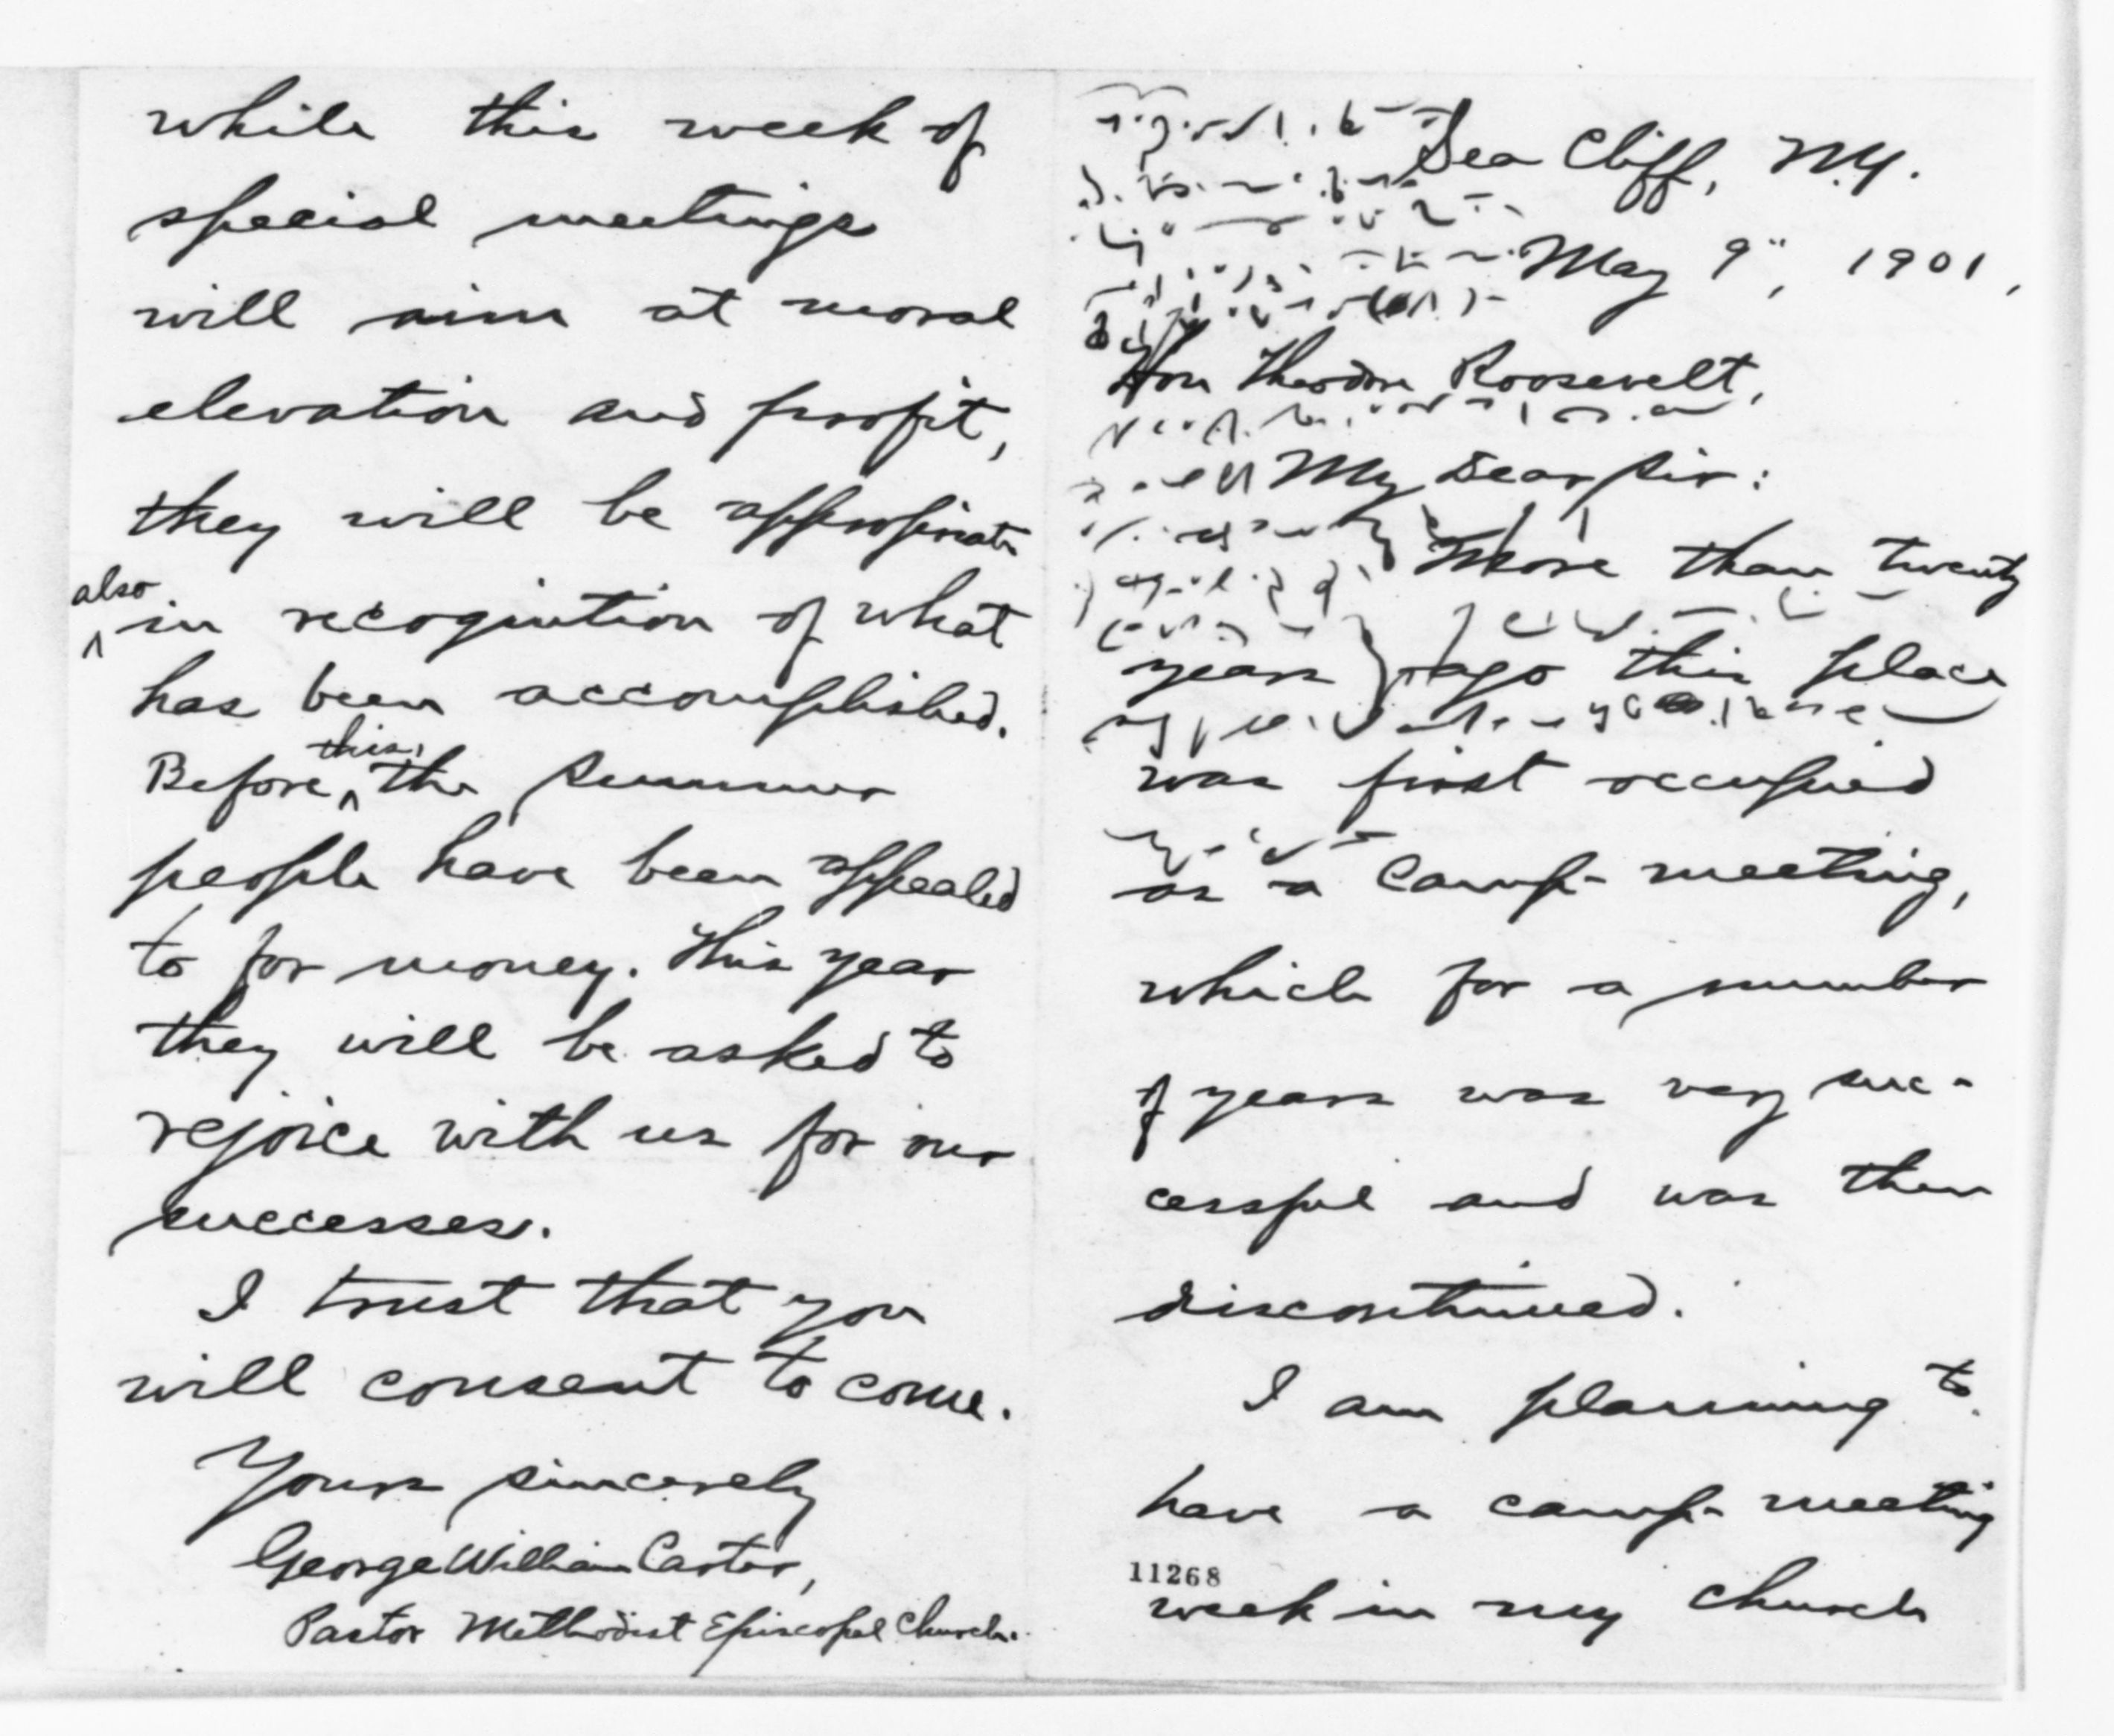 Sea Cliff, N.Y.
May 9", 1901,
Hon Theodore Roosevelt,
My Dear Sir:
More than twenty
years ago this place
was first occupied
as a Camp-meeting,
which for a number
of years was very suc-
cessful and was then
discontinued.
I am planning to
have a camp-meeting
11268
week in my church
while this week of
special meetings
will aim at moral
elevation and profit,
they will be appropriate
also
in recognition of what
has been accomplished.
this,
Before the summer
people have been appealed
to for money. This year
they will be asked to
rejoice with us for our
successes.
I trust that you
will consent to come.
Yours sincerely
George William Carter,
Pastor Methodist Episcopal Church.